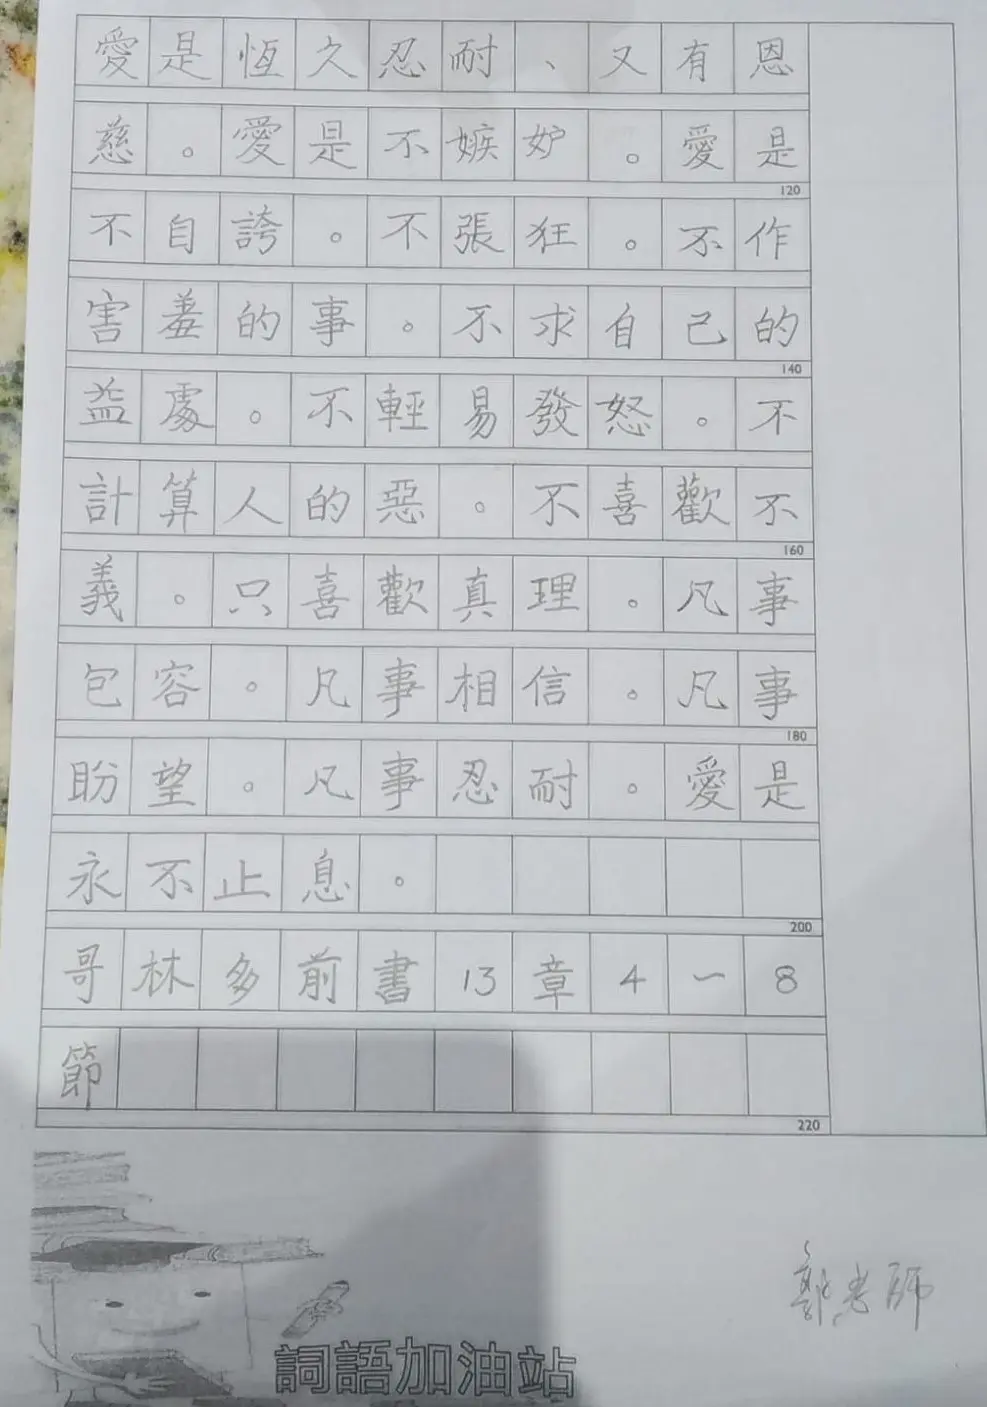 愛是恆久忍耐、又有恩
慈。愛是不嫉妒。愛是
120
不自誇。不張狂。不作
害羞的事。不求自己的
140
益處。不輕易發怒。不
計算人的惡。不喜歡不
160
義。只喜歡真理。凡事
包容。凡事相信。凡事
180
盼望。凡事忍耐。愛是
永不止息。
200
哥林多前書13章4－8
節
220
郭老師
詞語加油站